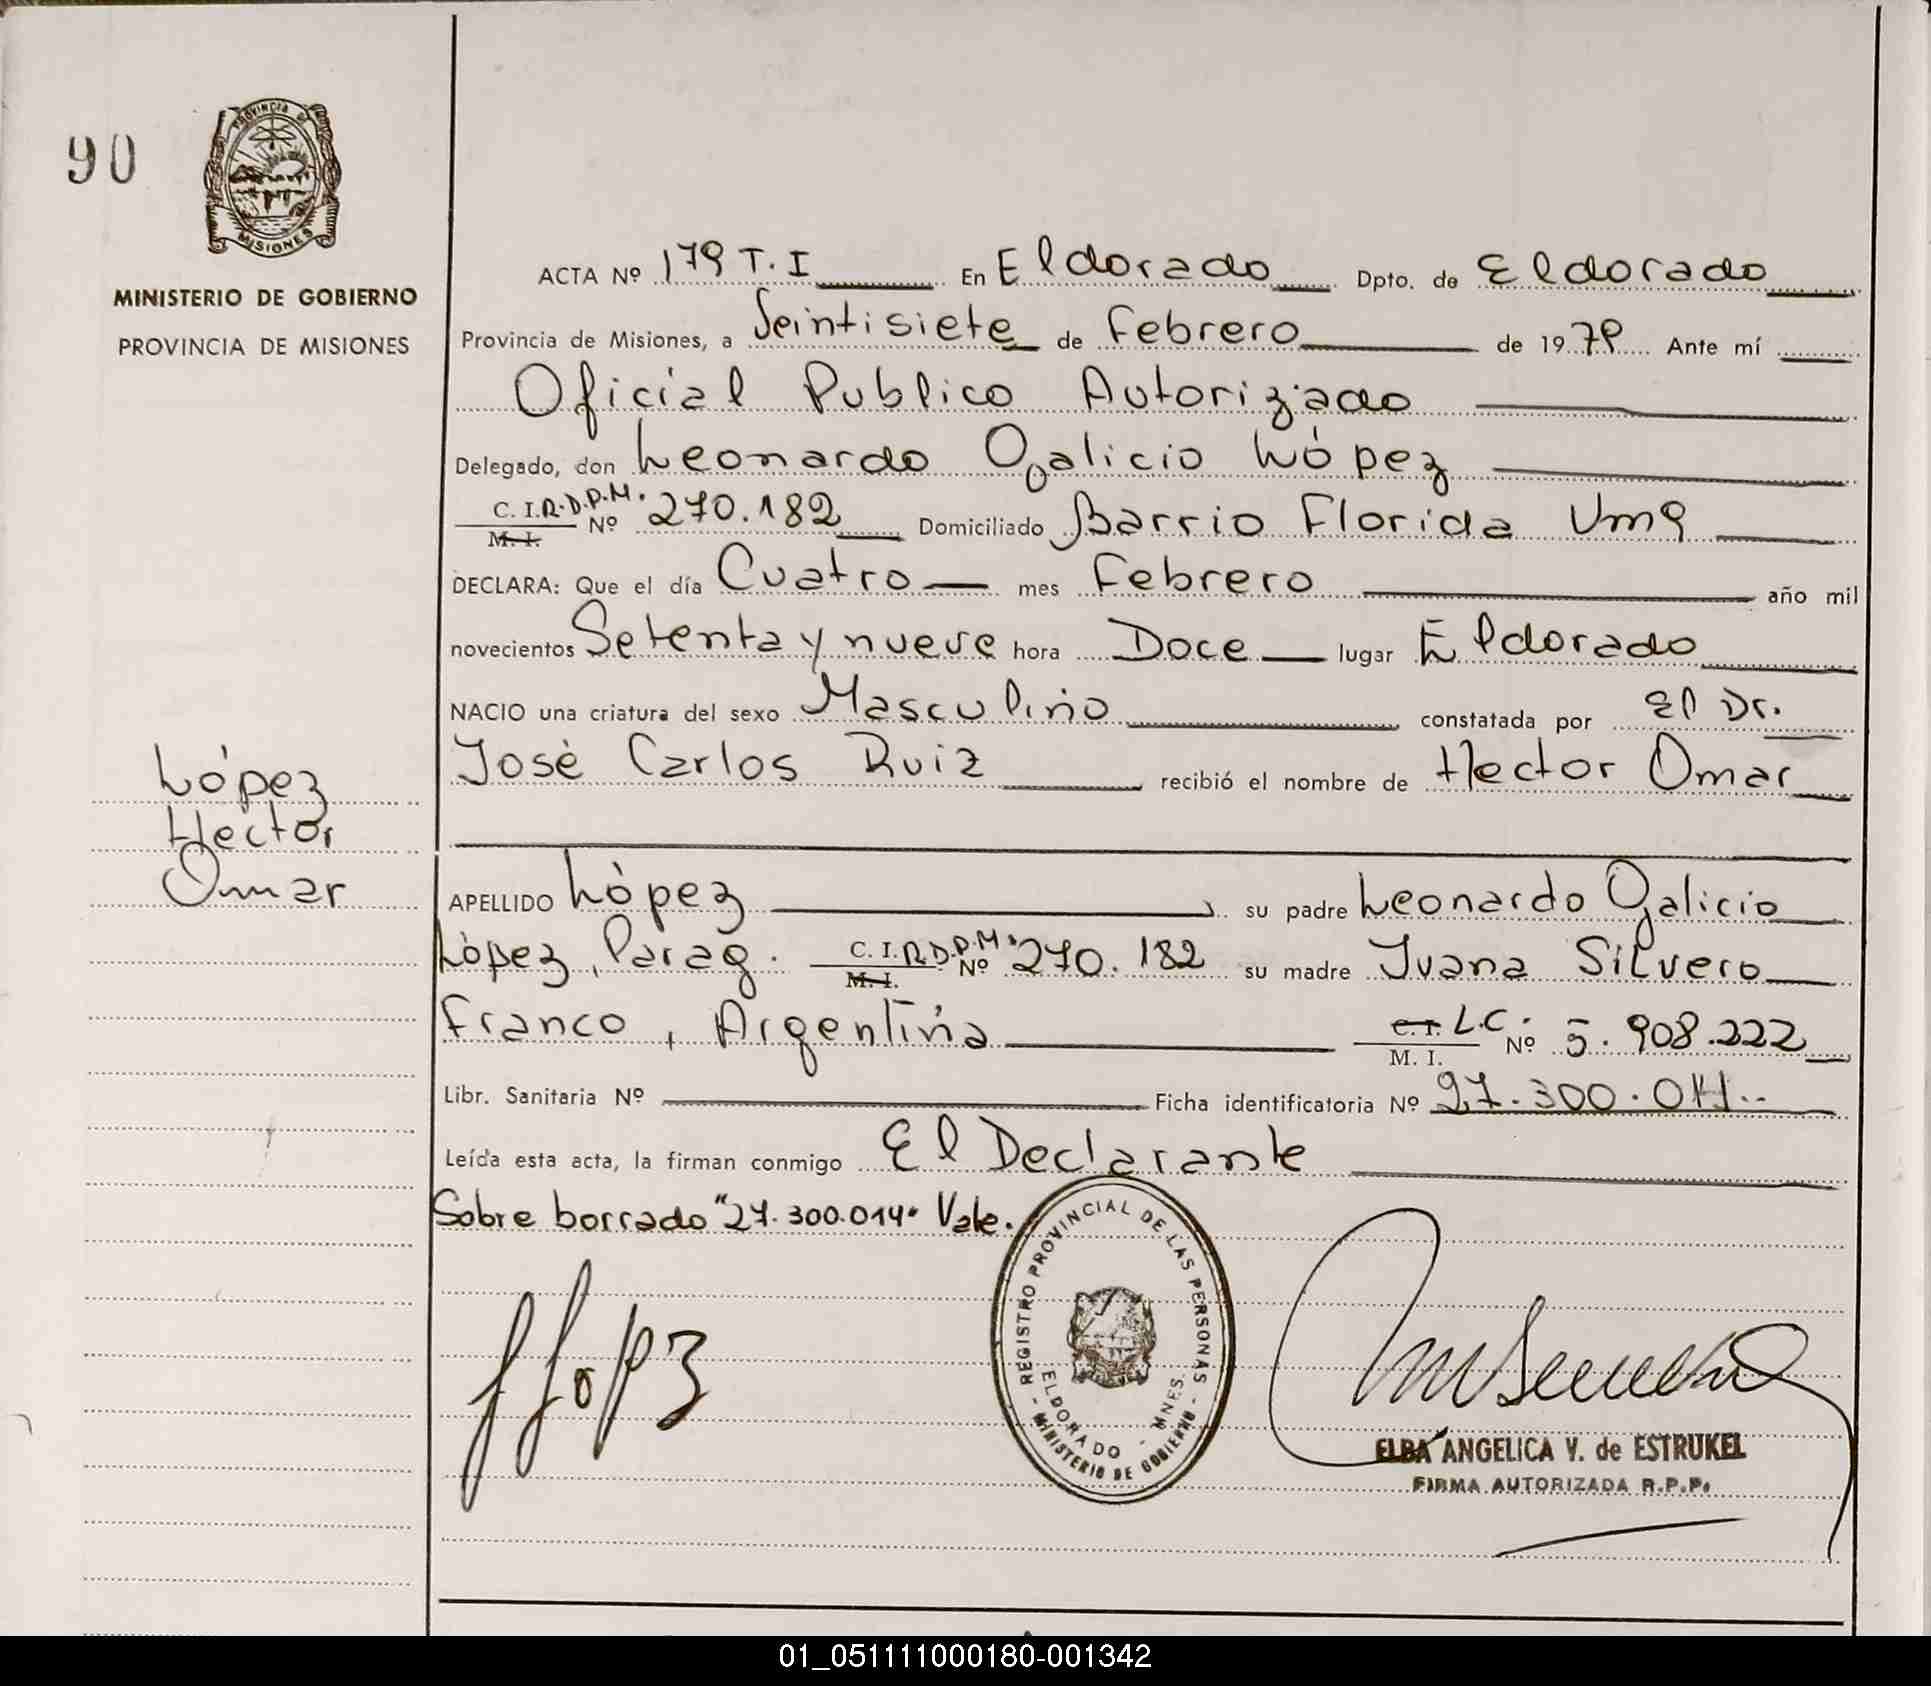 90
PROVINCIA D
MISIONES
MINISTERIO DE GOBIERNO
PROVINCIA DE MISIONES
ACTA Nº 179 T. I En Eldorado Dpto. de Eldorado
Provincia de Misiones, a Veintisiete de Febrero de 1979 Ante mí
Oficial Publico Autorizado
Delegado, don Leonardo Ogalicio López
C. I.R.D.P.M. M. I. Nº 270.182 Domiciliado Barrio Florida Um9
DECLARA: Que el día Cuatro mes Febrero año mil
novecientos Setenta y nueve hora Doce lugar Eldorado
NACIO una criatura del sexo Masculino constatada por El Dr.
José Carlos Ruiz recibió el nombre de Hector Omar
López
Hector
Omar
APELLIDO López su padre Leonardo Ogalicio
López, Parag. C. I.R.D.P.M. M. I. Nº 270.182 su madre Juana Silvero
Franco, Argentina C. I. L.C. M. I. Nº 5.908.222
Libr. Sanitaria Nº Ficha identificatoria Nº 27.300.014..
Leída esta acta, la firman conmigo El Declarante
Sobre borrado "27.300.014" Vale.
REGISTRO PROVINCIAL DE LAS PERSONAS
ELDORADO - MNES.
- MINISTERIO DE GOBIERNO -
ELBA ANGELICA V. de ESTRUKEL
FIRMA AUTORIZADA R.P.P.
01_051111000180-001342